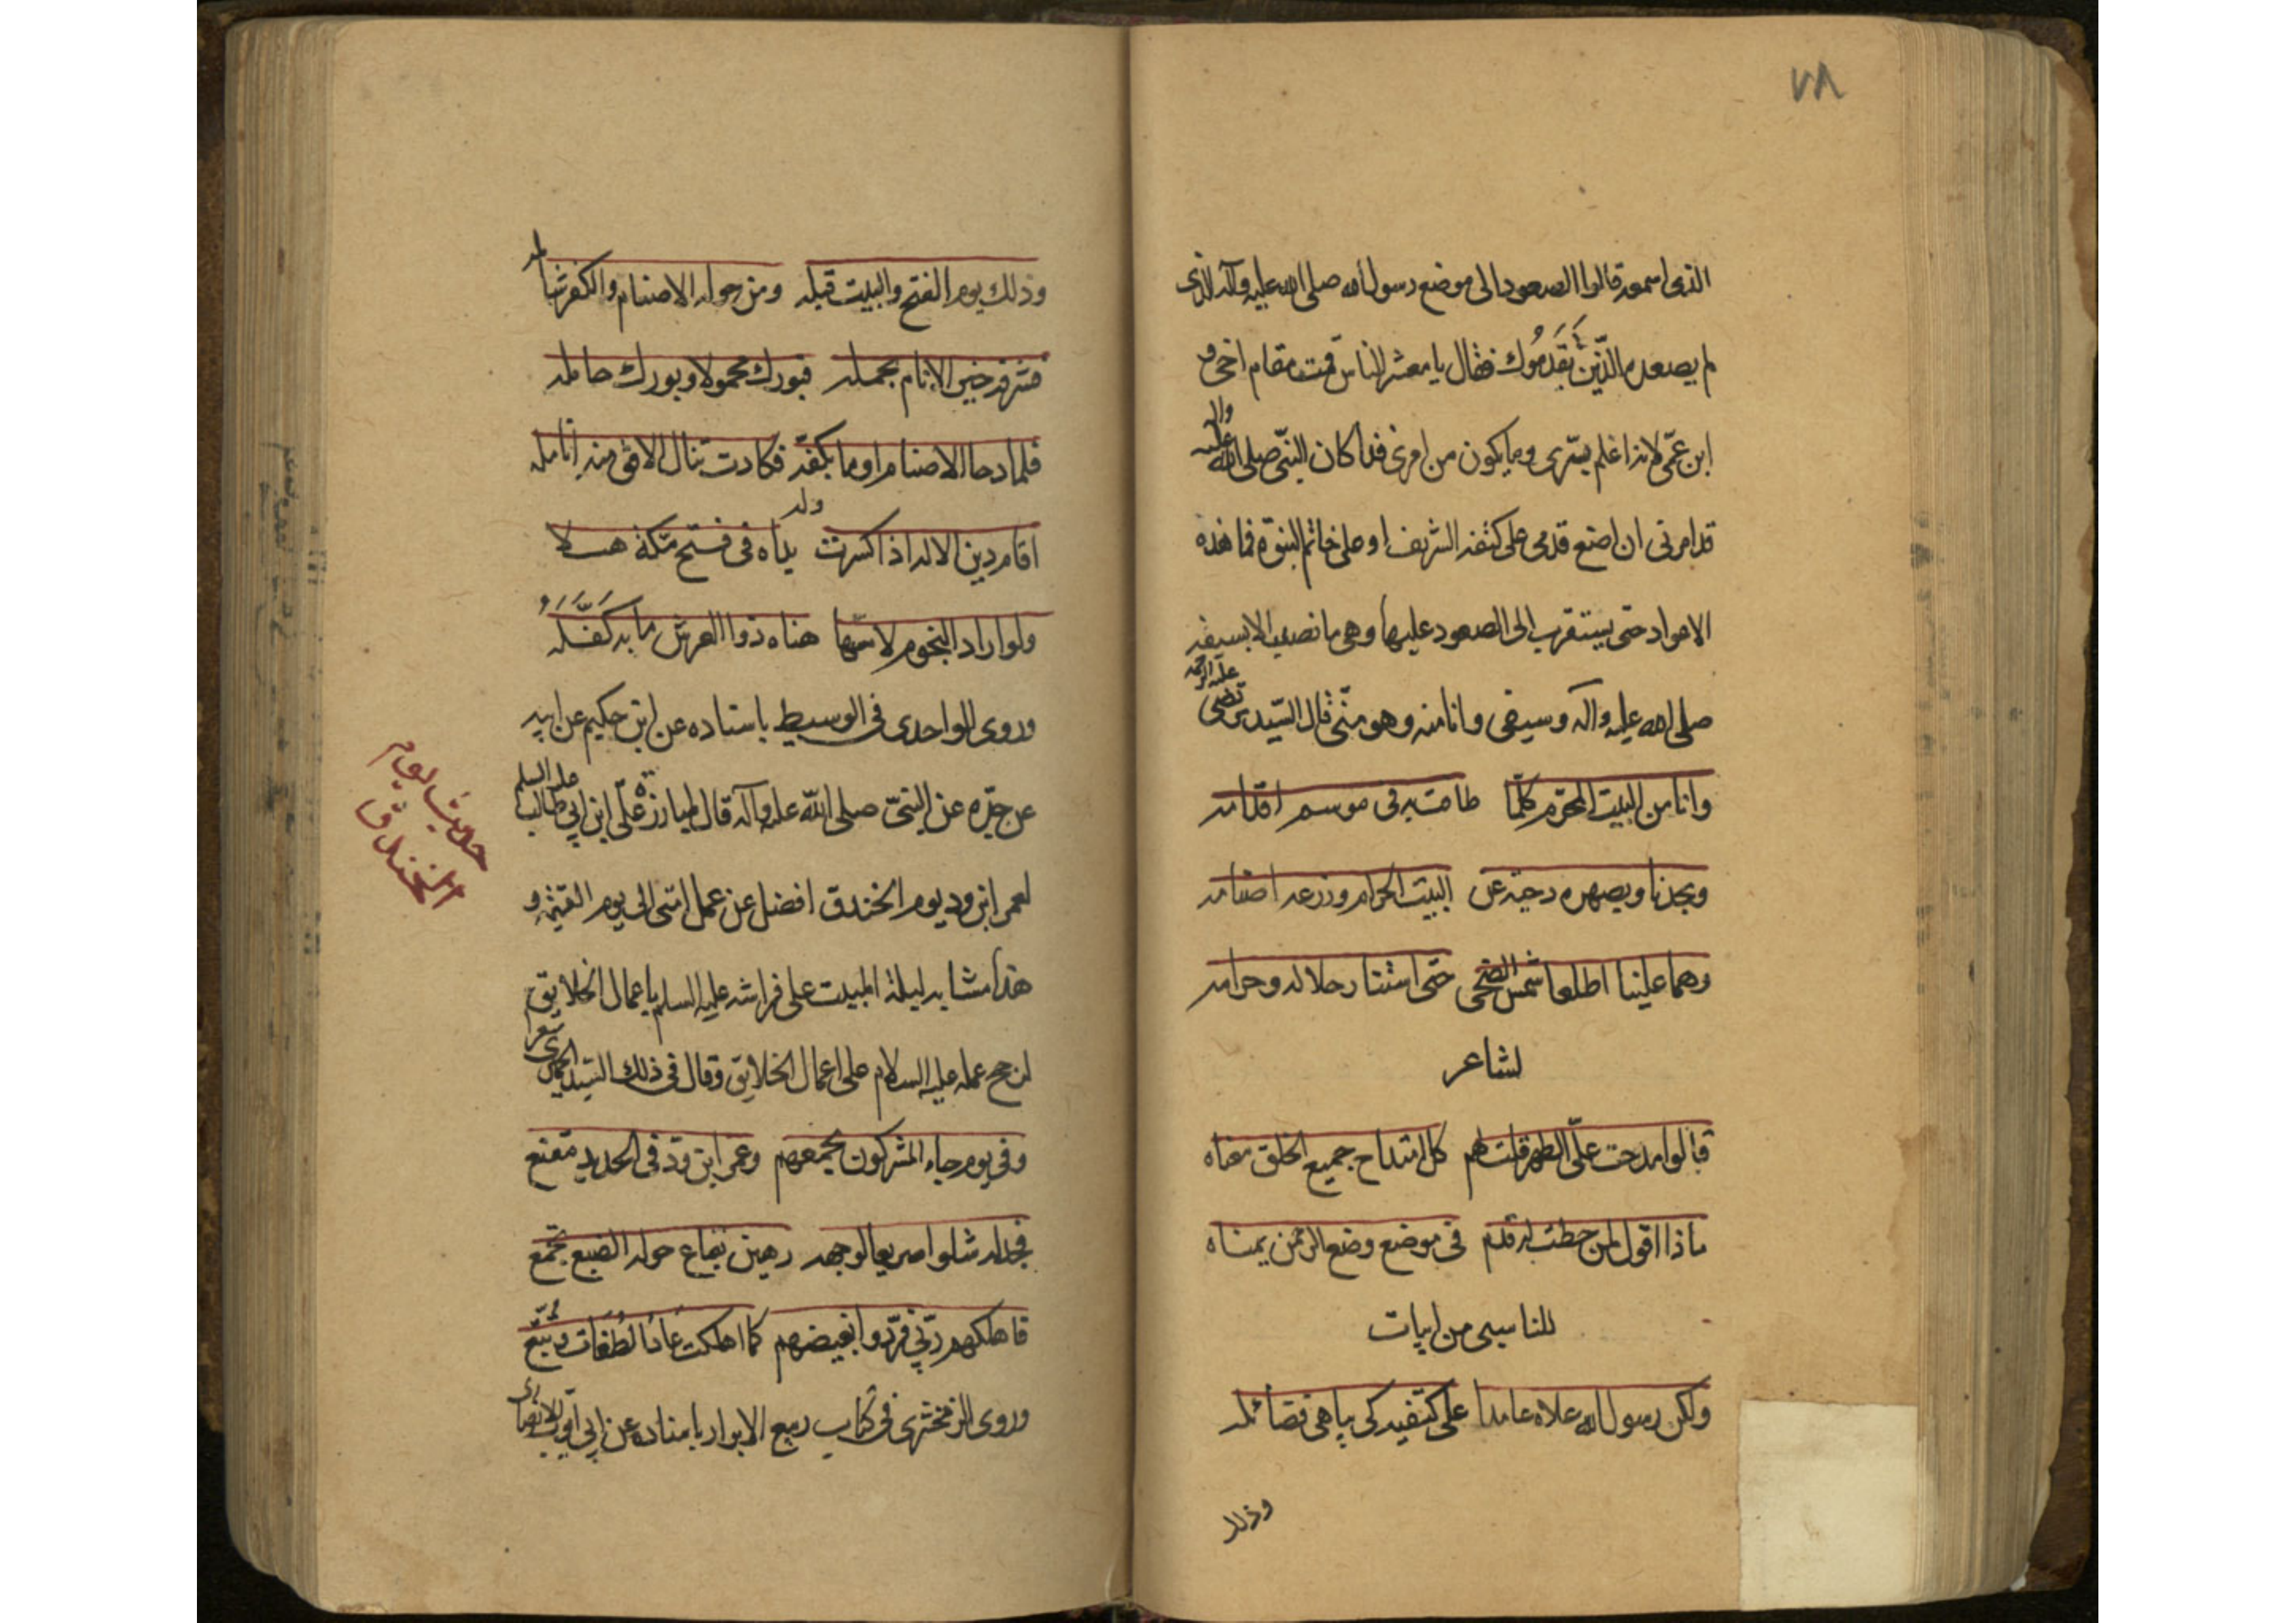 ٧٨
الذى اسمعه قالوا الصعود الى موضع رسول الله صلى الله عليه وآله الذى
لم يصعده الذين تقدموك فقال يا معشر الناس قمت مقام اخى و
ابن عمى لانه اعلم بسرى وما يكون من امرى فلما كان النبى صلى الله عليه واله
قد امرنى ان اضع قدمى على كتفه الشريف او على خاتم النبوة فما هذه
الاعواد حتى يستقرب الى الصعود عليها وهى ما نصبت الا بسيفه
صلى الله عليه وآله وسيفى وانا منه وهو منى قال السيد مرتضى عليه الرحمه
وانا من البيت المحرم كلما طافت به فى موسم اقدامه
وبجدنا وبصهره دحيت عن البيت الحرام وزعزعت اصنامه
وهما علينا اطلعا شمس الضحى حتى استنار حلاله وحرامه
لشاعر
قالوا مدحت على الطهر قلت لهم كل امتداح جميع الخلق معناه
ماذا اقول لمن حطت له قدم فى موضع وضع الرحمن يمناه
للناسى من ابيات
ولكن رسول الله علاه عامدا على كتفيه كى يباهى فضائله
وذلك
وذلك يوم الفتح والبيت قبله ومن حوله الاصنام والكفر شامله
فشرفه خير الانام بحمله فبورك محمولا وبورك حامله
فلما دحا الاصنام اوما بكفه فكادت تنال الافق منه انامله
وله
اقام دين الاله اذ كسرت يداه فى فتح مكة هبلا
ولو اراد النجوم لامسها هناه ذو العرش ما به كفله
وروى الواحدى فى الوسيط باسناده عن ابن حكيم عن ابيه
عن جده عن النبى صلى الله عليه وآله قال لمبارزة على ابن ابى طالب عليه السلم
لعمر ابن ود يوم الخندق افضل عن عمل امتى الى يوم القيمة و
هذا مشابه ليلة المبيت على فراشه عليه السلم باعمال الخلايق
لرجح عمله عليه السلام على اعمال الخلايق وقال فى ذلك السيد الحميرى شعر
وفى يوم جاء المشركون بجمعهم وعمر ابن ود فى الحديد مقنع
فجدله شلوا صريعا لوجهه رهين بقاع حوله الضبع تجمع
فاهلكهم ربى فردوا بغيضهم كما اهلكت عاد الطغات وتبع
وروى الزمخشرى فى كتاب ربيع الابرار باسناده عن ابى ايوب الانصارى
حديث يوم
الخندق